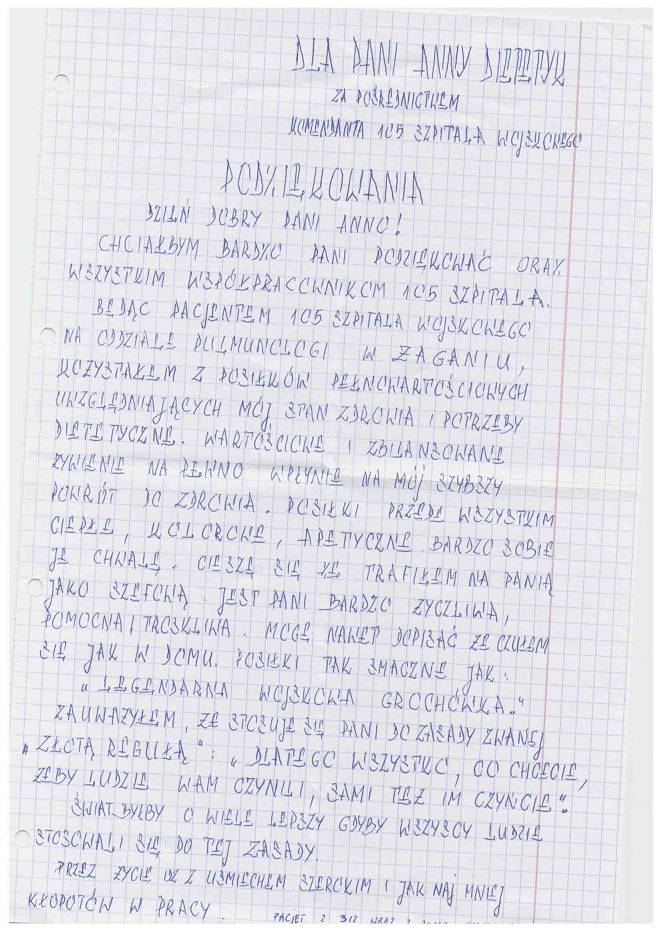 DLA PANI ANNY DIETETYK
ZA POŚREDNICTWEM
KOMENDANTA 105 SZPITALA WOJSKOWEGO
PODZIĘKOWANIA
DZIEŃ DOBRY PANI ANNO!
CHCIAŁBYM BARDZO PANI PODZIĘKOWAĆ ORAZ
WSZYSTKIM WSPÓŁPRACOWNIKOM 105 SZPITALA.
BĘDĄC PACJENTEM 105 SZPITALA WOJSKOWEGO
NA ODDZIALE PULMUNOLOGI W ŻAGANIU,
KOZYSTAŁEM Z POSIŁKÓW PEŁNOWARTOŚCIOWYCH
UWZGLĘDNIAJĄCYCH MÓJ STAN ZDROWIA I POTRZEBY
DIETETYCZNE. WARTOŚCIOWE I ZBILANSOWANE
ŻYWIENIE NA PEWNO WPŁYNIE NA MÓJ SZYBSZY
POWRÓT DO ZDROWIA. POSIŁKI PRZEDE WSZYSTKIM
CIEPŁE, KOLOROWE, APETYCZNE. BARDZO SOBIE
JE CHWALĘ. CIESZĘ SIĘ ŻE TRAFIŁEM NA PANIĄ
JAKO SZEFOWĄ. JEST PANI BARDZO ŻYCZLIWA,
POMOCNA I TROSKLIWA. MOGĘ NAWET DOPISAĆ ŻE CZUŁEM
SIĘ JAK W DOMU. POSIŁKI TAK SMACZNE JAK:
"LEGENDARNA WOJSKOWA GROCHÓWKA."
ZAUWAŻYŁEM, ŻE STOSUJE SIĘ PANI DO ZASADY ZWANEJ
„ZŁOTĄ REGUŁĄ": „DLATEGO WSZYSTKO, CO CHCECIE,
ŻEBY LUDZIE WAM CZYNILI, SAMI TEŻ IM CZYŃCIE".
ŚWIAT BYŁBY O WIELE LEPSZY GDYBY WSZYSCY LUDZIE
STOSOWALI SIĘ DO TEJ ZASADY.
PRZEZ ŻYCIE IDŹ Z UŚMIECHEM SZEROKIM I JAK NAJ MNIEJ
KŁOPOTÓW W PRACY.
PACJET Z 312 WRAZ Z